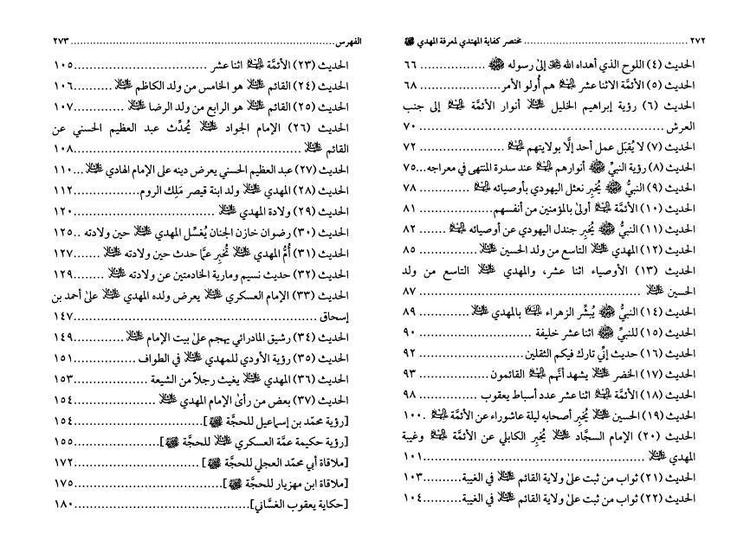 ٢٧٢ ........ مختصر كفاية المهتدي لمعرفة المهدي ﷺ
الحديث (٤) اللوح الذي أهداه الله ﷻ إلىٰ رسوله ﷺ ........ ٦٦
الحديث (٥) الأئمَّة الاثنا عشر ﷺ هم أُولو الأمر ........ ٦٨
الحديث (٦) رؤية إبراهيم الخليل ﷺ أنوار الأئمَّة ﷺ إلى جنب
العرش ........ ٧٠
الحديث (٧) لا يُقبَل عمل أحد إلَّا بولايتهم ﷺ ........ ٧٢
الحديث (٨) رؤية النبيِّ ﷺ أنوارهم ﷺ عند سدرة المنتهى في معراجه...٧٥
الحديث (٩) النبيُّ ﷺ يُخبِر نعثل اليهودي بأوصيائه ﷺ ........ ٧٨
الحديث (١٠) الأئمَّة ﷺ أولىٰ بالمؤمنين من أنفسهم ........ ٨١
الحديث (١١) النبيُّ ﷺ يُخبِر جندل اليهودي عن أوصيائه ﷺ ........ ٨٢
الحديث (١٢) المهدي ﷺ التاسع من ولد الحسين ﷺ ........ ٨٥
الحديث (١٣) الأوصياء اثنا عشر، والمهدي ﷺ التاسع من ولد
الحسين ﷺ ........ ٨٧
الحديث (١٤) النبيُّ ﷺ يُبشِّر الزهراء ﷺ بالمهدي ﷺ ........ ٨٩
الحديث (١٥) للنبيِّ ﷺ اثنا عشر خليفة ........ ٩٠
الحديث (١٦) حديث إنِّي تارك فيكم الثقلين ........ ٩٢
الحديث (١٧) الخضر ﷺ يشهد أنَّهم ﷺ القائمون ........ ٩٣
الحديث (١٨) الأئمَّة ﷺ اثنا عشر عدد أسباط يعقوب ........ ٩٨
الحديث (١٩) الحسين ﷺ يُخبِر أصحابه ليلة عاشوراء عن الأئمَّة ﷺ ..١٠٠
الحديث (٢٠) الإمام السجَّاد ﷺ يُخبِر الكابلي عن الأئمَّة ﷺ وغيبة
المهدي ﷺ ........ ١٠١
الحديث (٢١) ثواب من ثبت علىٰ ولاية القائم ﷺ في الغيبة ........ ١٠٣
الحديث (٢٢) ثواب من ثبت علىٰ ولاية القائم ﷺ في الغيبة ........ ١٠٤
الفهرس ........ ٢٧٣
الحديث (٢٣) الأئمَّة ﷺ اثنا عشر ........ ١٠٥
الحديث (٢٤) القائم ﷺ هو الخامس من ولد الكاظم ﷺ ........ ١٠٦
الحديث (٢٥) القائم ﷺ هو الرابع من ولد الرضا ﷺ ........ ١٠٧
الحديث (٢٦) الإمام الجواد ﷺ يُحدِّث عبد العظيم الحسني عن
القائم ﷺ ........ ١٠٨
الحديث (٢٧) عبد العظيم الحسني يعرض دينه علىٰ الإمام الهادي ﷺ ....١١٠
الحديث (٢٨) المهدي ﷺ ولد ابنة قيصر مَلِك الروم ........ ١١٢
الحديث (٢٩) ولادة المهدي ﷺ ........ ١٢٠
الحديث (٣٠) رضوان خازن الجنان يُغسِّل المهدي ﷺ حين ولادته ..١٢٥
الحديث (٣١) أُمُّ المهدي ﷺ تُخبِر عمَّا حدث حين ولادته ........ ١٢٧
الحديث (٣٢) حديث نسيم ومارية الخادمتين عن ولادته ﷺ ........ ١٢٩
الحديث (٣٣) الإمام العسكري ﷺ يعرض ولده المهدي ﷺ علىٰ أحمد بن
إسحاق ........ ١٤٧
الحديث (٣٤) رشيق المادرائي يهجم علىٰ بيت الإمام ﷺ ........ ١٤٩
الحديث (٣٥) رؤية الأودي للمهدي ﷺ في الطواف ........ ١٥١
الحديث (٣٦) المهدي ﷺ يغيث رجلاً من الشيعة ........ ١٥٣
الحديث (٣٧) بعض من رأىٰ الإمام المهدي ﷺ ........ ١٥٤
[رؤية محمّد بن إسماعيل للحجَّة ﷺ] ........ ١٥٤
[رؤية حكيمة عمَّة العسكري ﷺ للحجَّة ﷺ] ........ ١٥٥
[ملاقاة أبي محمّد العجلي للحجَّة ﷺ] ........ ١٧٢
[ملاقاة ابن مهزيار للحجَّة ﷺ] ........ ١٧٥
[حكاية يعقوب الغسَّاني] ........ ١٨٠